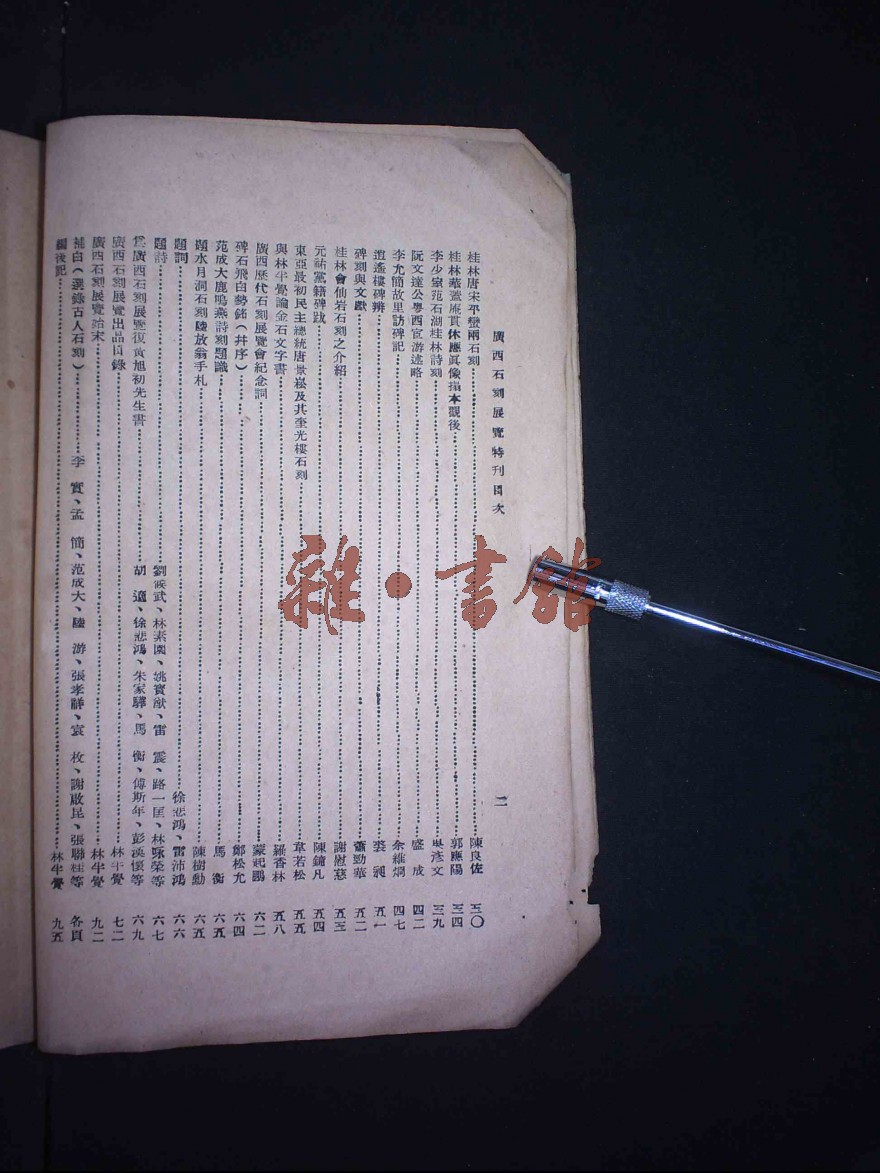 廣西石刻展覽特刊目次
二
桂林唐宋平蠻兩石刻……陳良佐 三〇
桂林華蓋庵貫休應眞像搨本觀後……郭應陽 三四
李少宗范石湖桂林詩刻……吳彥文 三九
阮文達公粵西宦游述略……盛成 四二
李尤簡故里訪碑記……余維炯 四七
逍遙樓碑辨……裘昶 五一
碑刻與文獻……蕭勁華 五二
桂林會仙岩石刻之介紹……謝慰慈 五三
元祐黨籍碑跋……陳鐘凡 五四
東亞最初民主總統唐景崧及其奎光樓石刻……韋若松 五五
與林半覺論金石文字書……羅香林 五八
廣西歷代石刻展覽會紀念詞……蒙起鵬 六二
碑石飛白勢銘(幷序)……鄭松尤 六四
范成大鹿鳴燕詩刻題識……馬衡 六五
題水月洞石刻陸放翁手札……陳樹勳 六五
題詞……徐悲鴻、雷沛鴻 六六
題詩……劉侯武、林素園、姚寶猷、雷震、路一匡、林咏榮等 六七
爲廣西石刻展覽復黃旭初先生書……胡適、徐悲鴻、朱家驊、馬衡、傅斯年、彭漢懷等 六九
廣西石刻展覽出品目錄……林半覺 七二
廣西石刻展覽始末……林半覺 九二
補白(選錄古人石刻)……李實、孟簡、范成大、陸游、張孝祥、袁枚、謝啟昆、張聯桂等 各頁
編後記……林半覺 九五
雜·書館